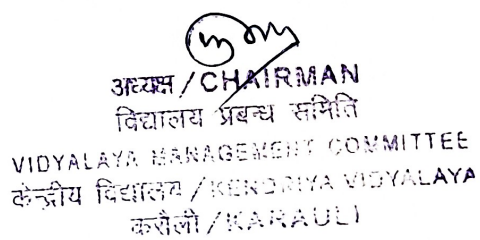 अध्यक्ष / CHAIRMAN
विद्यालय प्रबन्ध समिति
VIDYALAYA MANAGEMENT COMMITTEE
केन्द्रीय विद्यालय / KENDRIYA VIDYALAYA
करौली / KARAULI